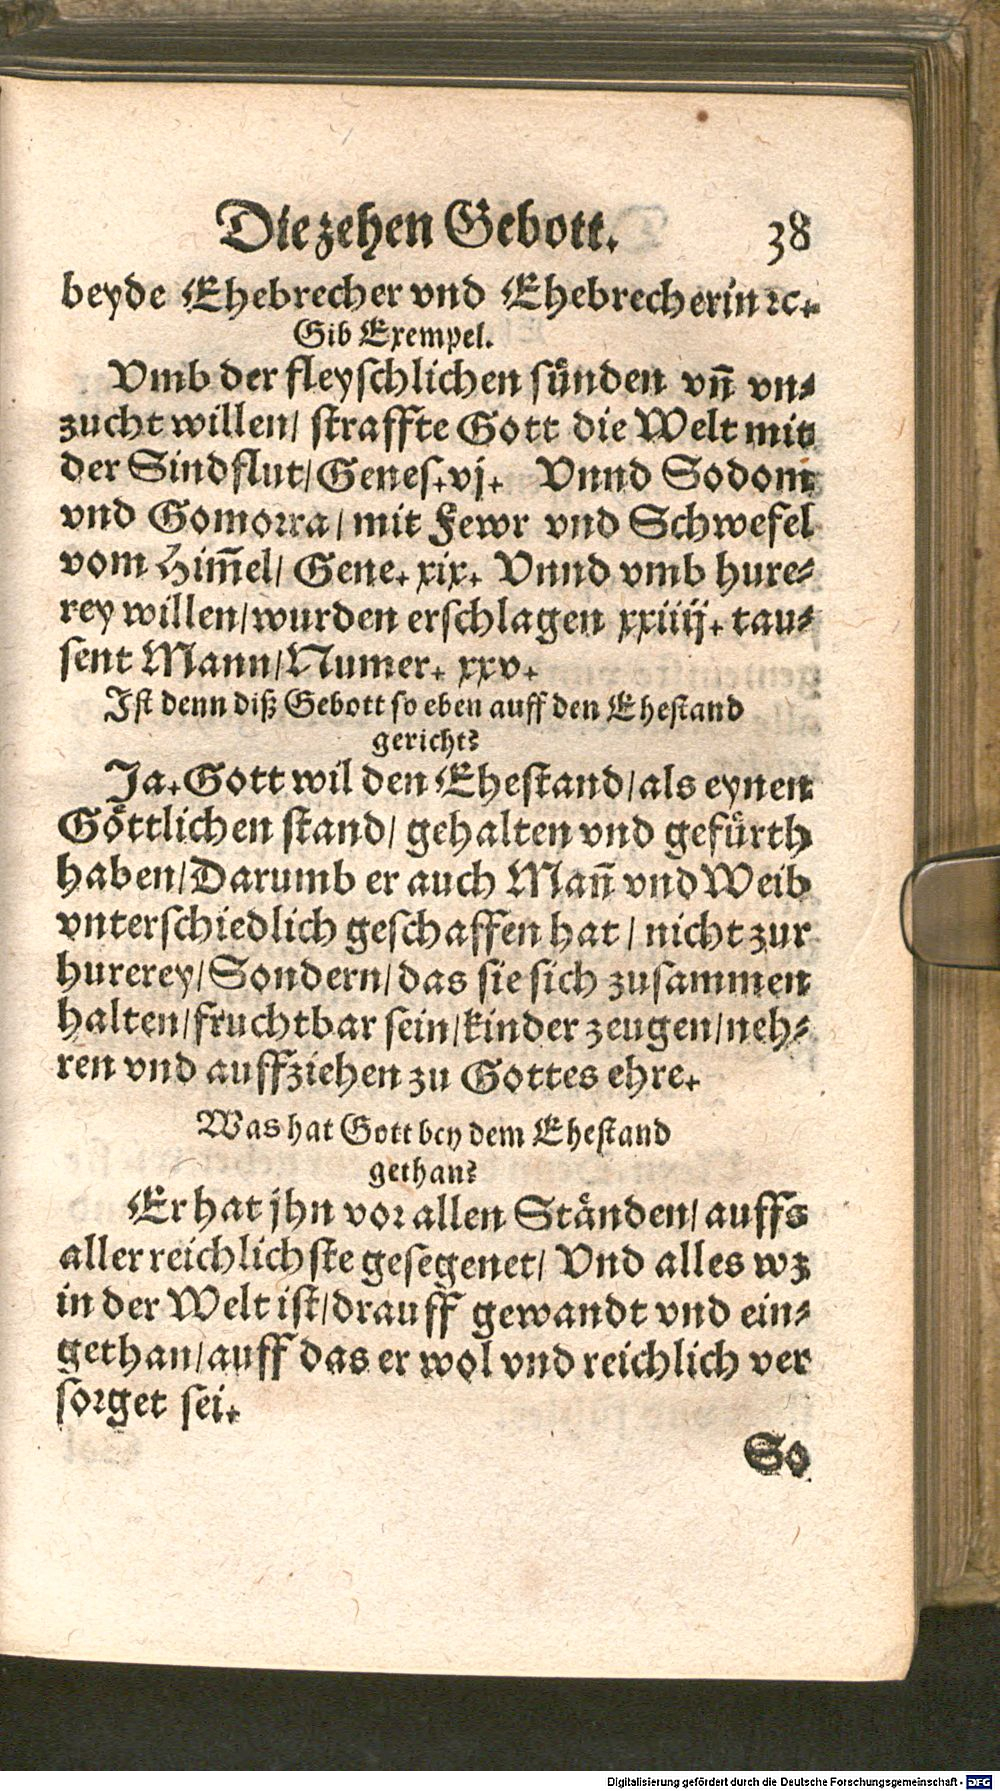 Die zehen Gebott. 38
beyde Ehebrecher vnd Ehebrecherin ꝛc.
Gib Exempel.
Vmb der fleyschlichen sünden vñ vn⸗
zucht willen/ straffte Gott die Welt mit
der Sindflut/ Genes. vj. Vnnd Sodom
vnd Gomorra/ mit Fewr vnd Schwefel
vom Him̃el/ Gene. xix. Vnnd vmb hure⸗
rey willen/ wurden erschlagen xxiiij. tau⸗
sent Mann/ Numer. xxv.
Ist denn diß Gebott so eben auff den Ehestand
gericht?
Ja. Gott wil den Ehestand/ als eynen
Göttlichen stand/ gehalten vnd gefürth
haben/ Darumb er auch Mañ vnd Weib
vnterschiedlich geschaffen hat/ nicht zur
hurerey/ Sondern/ das sie sich zusammen
halten/ fruchtbar sein/ kinder zeugen/ neh⸗
ren vnd auffziehen zu Gottes ehre.
Was hat Gott bey dem Ehestand
gethan?
Er hat jhn vor allen Ständen/ auffs
aller reichlichste gesegenet/ Vnd alles wz
in der Welt ist/ drauff gewandt vnd ein⸗
gethan/ auff das er wol vnd reichlich ver
sorget sei.
So
Digitalisierung gefördert durch die Deutsche Forschungsgemeinschaft - DFG